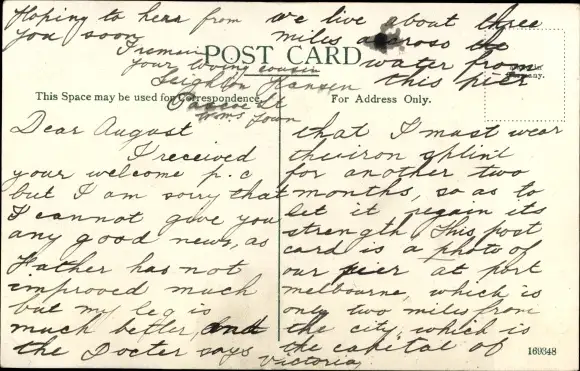 POST CARD
This Space may be used for Correspondence.
For Address Only.
Dear August
I received
your welcome p.c
but I am sorry that
I cannot give you
any good news, as
Father has not
improved much
but my leg is
much better, and
the Doctor says
that I must wear
the iron splint
for another two
months, so as to
let it regain its
strength This post
card is a photo of
our pier at port
melbourne, which is
only two miles from
the city, which is
the capital of
Victoria
we live about three
miles across the
water from
this pier
Hoping to hear from
you soon
I remain
your loving cousin
Leighton Hansen
Town
169348